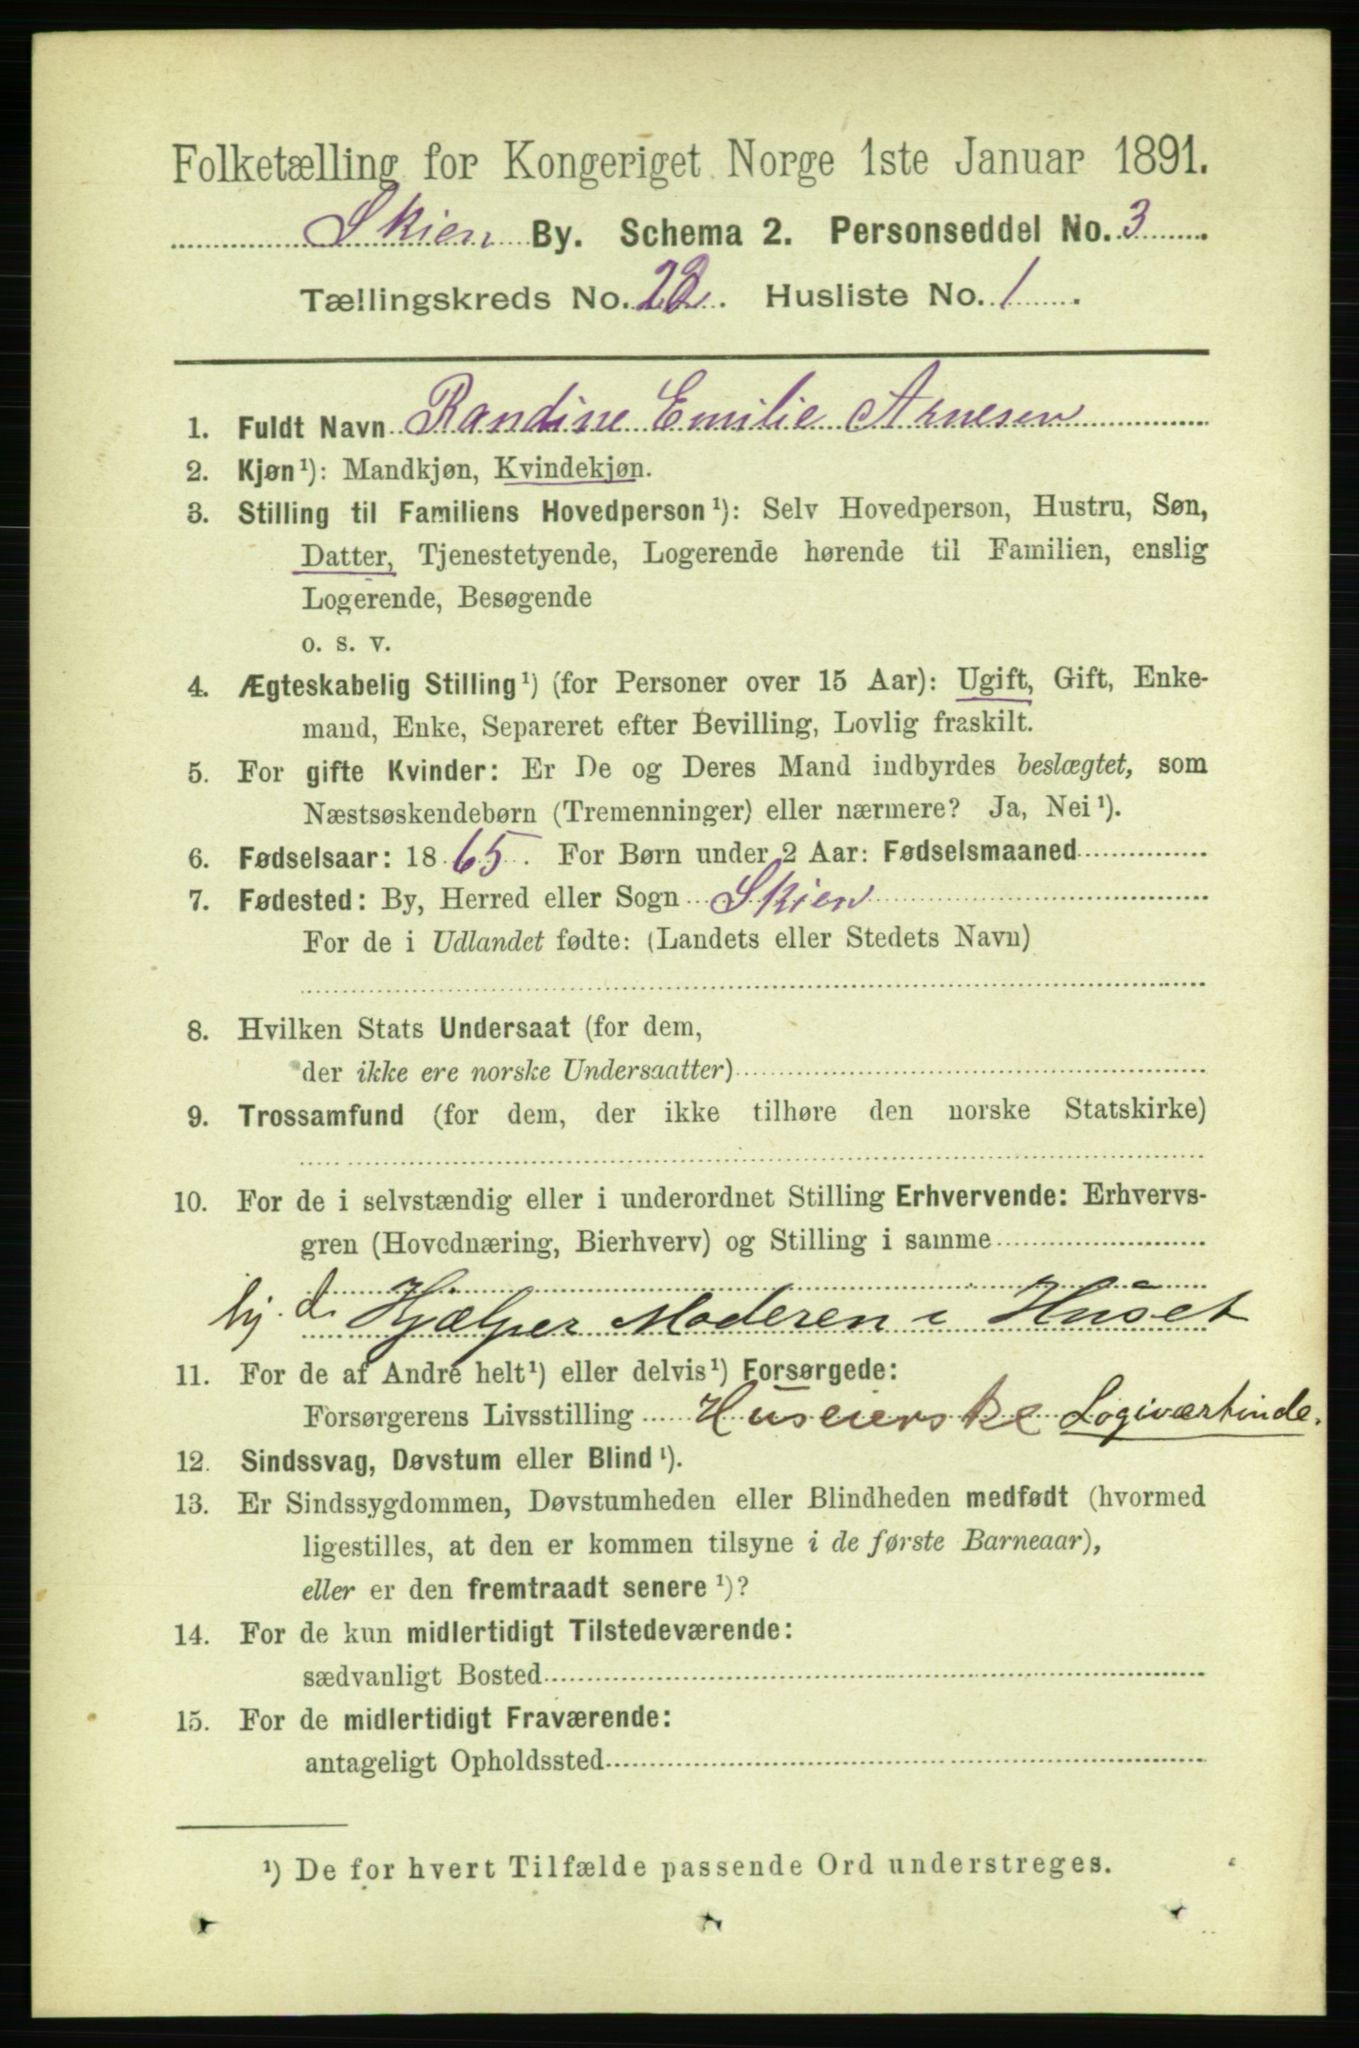 Folketælling for Kongeriget Norge 1ste Januar 1891.
Skien By. Schema 2. Personseddel No. 3
Tællingskreds No. 22. Husliste No. 1.
1. Fuldt Navn Randine Emilie Arnesen
2. Kjøn¹): Mandkjøn, Kvindekjøn.
3. Stilling til Familiens Hovedperson¹): Selv Hovedperson, Hustru, Søn,
Datter, Tjenestetyende, Logerende hørende til Familien, enslig
Logerende, Besøgende
o. s. v.
4. Ægteskabelig Stilling¹) (for Personer over 15 Aar): Ugift, Gift, Enke-
mand, Enke, Separeret efter Bevilling, Lovlig fraskilt.
5. For gifte Kvinder: Er De og Deres Mand indbyrdes beslægtet, som
Næstsøskendebørn (Tremenninger) eller nærmere? Ja, Nei¹).
6. Fødselsaar: 1865. For Børn under 2 Aar: Fødselsmaaned
7. Fødested: By, Herred eller Sogn Skien
For de i Udlandet fødte: (Landets eller Stedets Navn)
8. Hvilken Stats Undersaat (for dem,
der ikke ere norske Undersaatter)
9. Trossamfund (for dem, der ikke tilhøre den norske Statskirke)
10. For de i selvstændig eller i underordnet Stilling Erhvervende: Erhvervs-
gren (Hovednæring, Bierhverv) og Stilling i samme
hj. d. Hjælper Moderen i Huset
11. For de af Andre helt¹) eller delvis¹) Forsørgede:
Forsørgerens Livsstilling Huseierske Logiværtinde.
12. Sindssvag, Døvstum eller Blind¹).
13. Er Sindssygdommen, Døvstumheden eller Blindheden medfødt (hvormed
ligestilles, at den er kommen tilsyne i de første Barneaar),
eller er den fremtraadt senere¹)?
14. For de kun midlertidigt Tilstedeværende:
sædvanligt Bosted
15. For de midlertidigt Fraværende:
antageligt Opholdssted
¹) De for hvert Tilfælde passende Ord understreges.